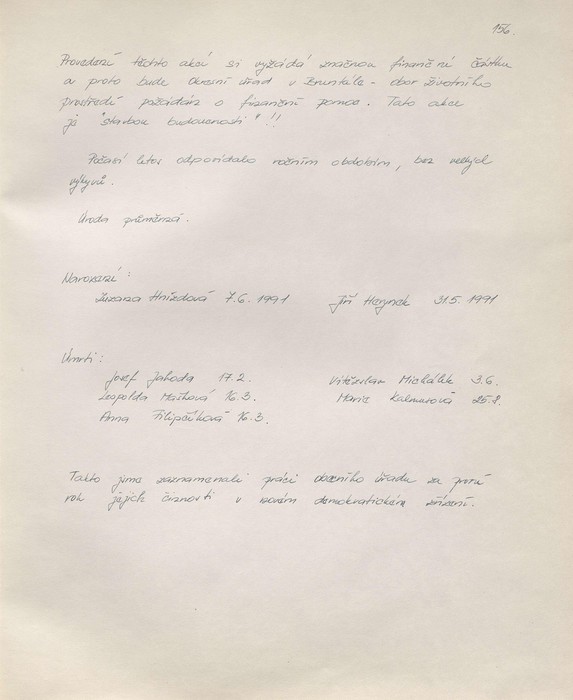 156.
Provedení těchto akcí si vyžádá značnou finanční částku
a proto bude Okresní úřad v Bruntále - obor životního
prostředí požádán o finanční pomoc. Tato akce
je "stavbou budoucnosti"!!
Počasí letos odpovídalo ročním obdobím, bez velkých
výkyvů.
Úroda průměrná.
Narození:
Zuzana Hnízdová 7.6.1991 Jiří Harynek 31.5.1991
Úmrtí:
Josef Jahoda 17.2. Vítězslav Michálik 3.6.
Leopolda Mašková 16.3. Marie Kalmusová
Anna Filipčíková 16.3.
Takto jsme zaznamenali práci obecního úřadu za první
rok jejich činnosti v novém demokratickém zřízení.